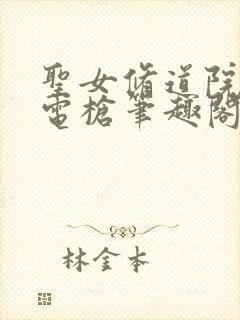 聖女脩道院
電槍筆趣閣
林金本